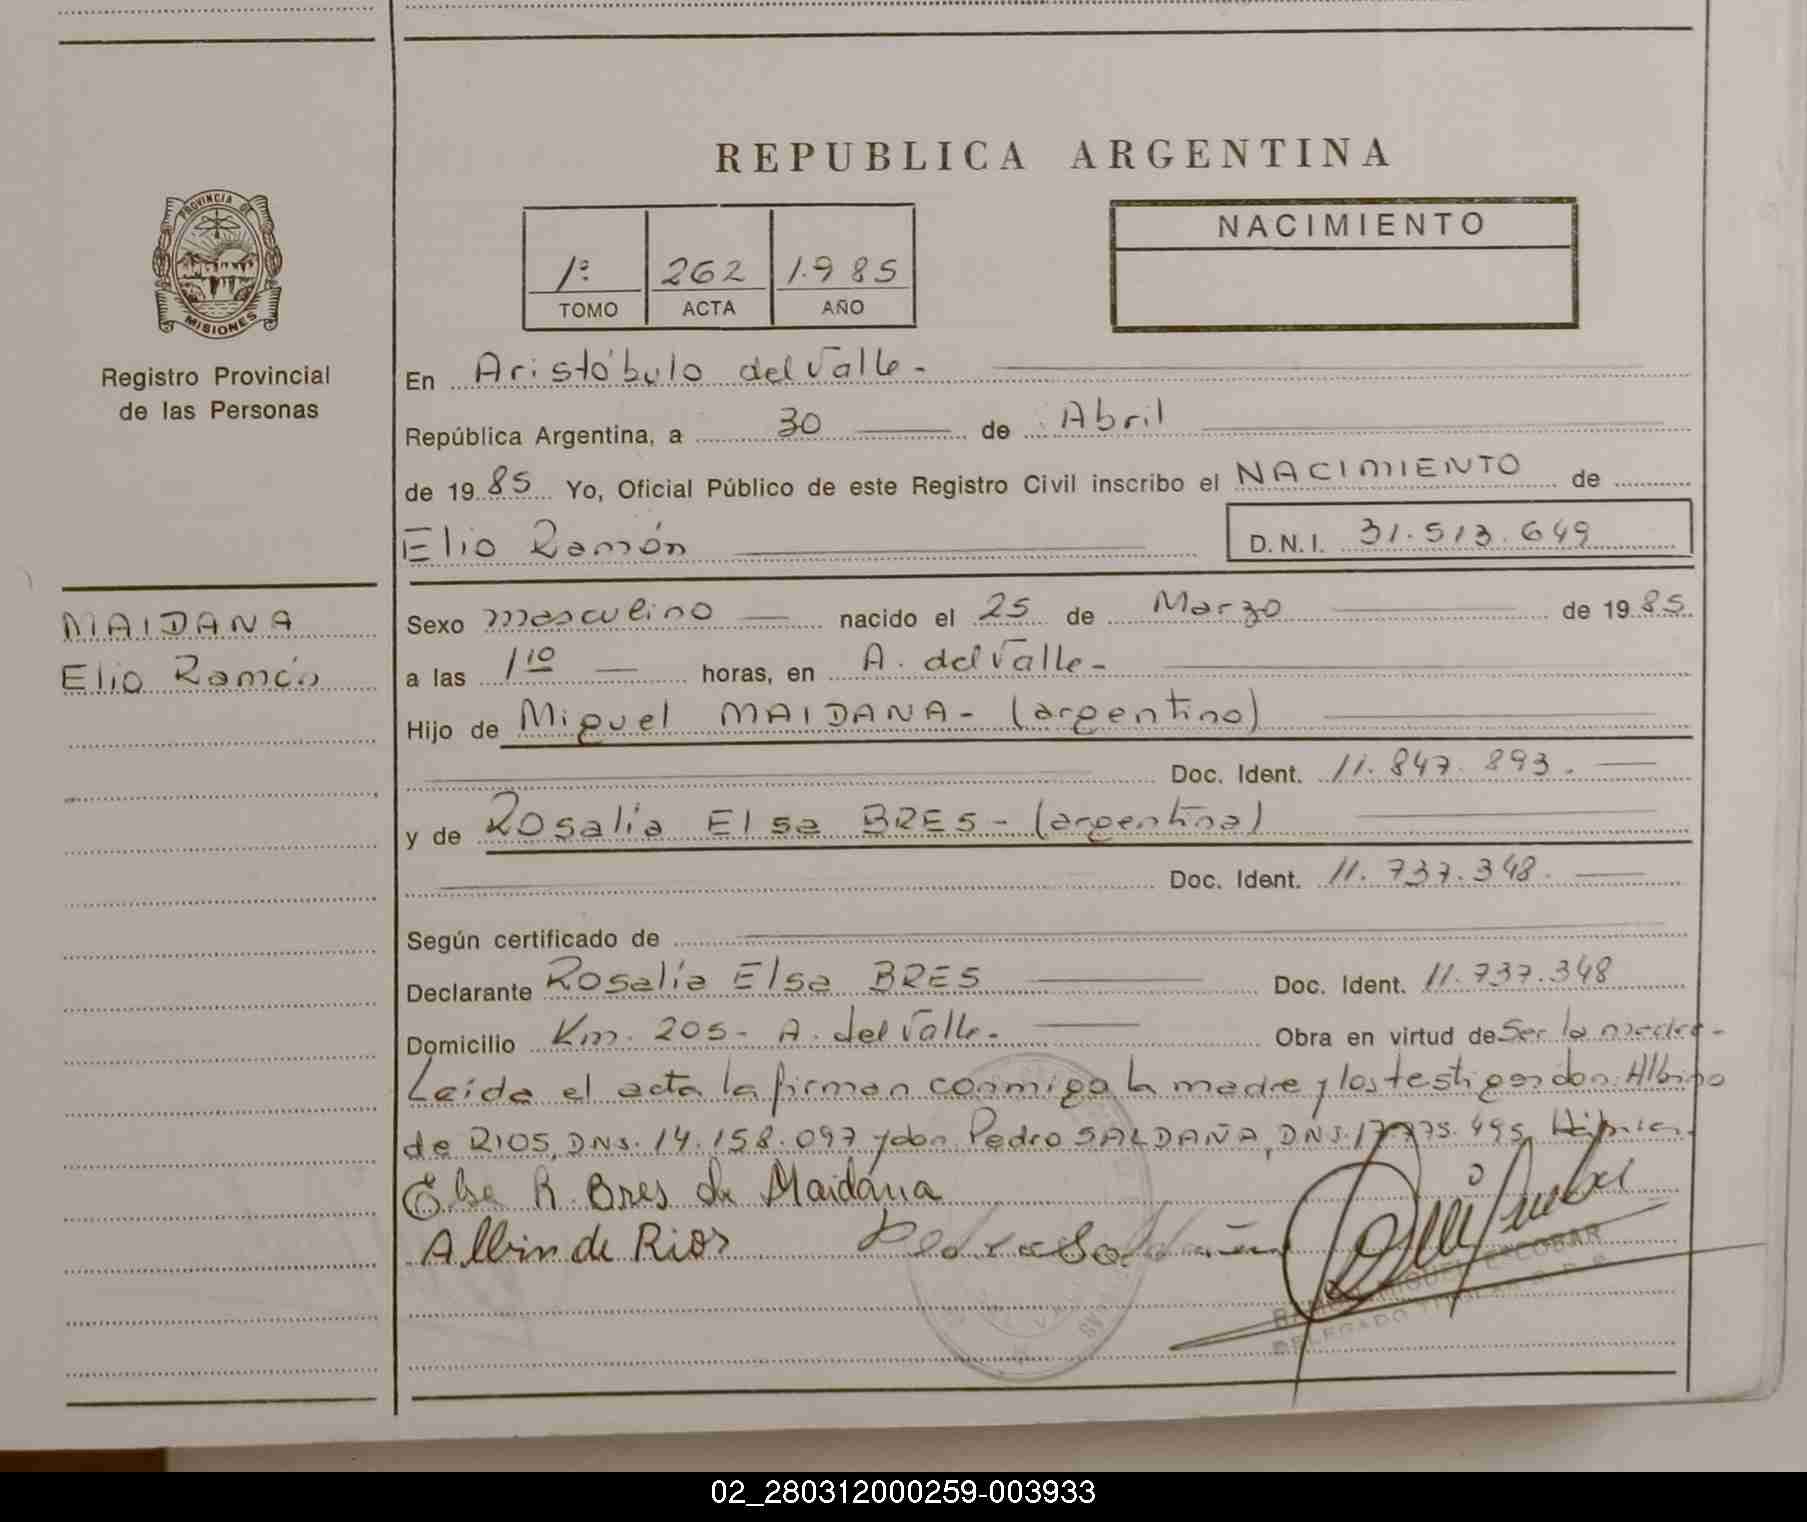 REPUBLICA ARGENTINA
PROVINCIA DE
MISIONES
Registro Provincial
de las Personas
1º 262 1.985
TOMO ACTA AÑO
NACIMIENTO
En Aristóbulo del Valle.-
República Argentina, a 30 de Abril
de 1985 Yo, Oficial Público de este Registro Civil inscribo el NACIMIENTO de
Elio Ramón D.N.I. 31.513.649
MAIDANA
Elio Ramón
Sexo masculino nacido el 25 de Marzo de 1985
a las 1 10 horas, en A. del Valle-
Hijo de Miguel MAIDANA- (argentino)
Doc. Ident. 11.847.893.
y de Rosalía Elsa BRES- (argentina)
Doc. Ident. 11.737.348.
Según certificado de
Declarante Rosalía Elsa BRES Doc. Ident. 11.737.348
Domicilio Km. 205- A. del Valle. Obra en virtud de Ser la madre-
Leída el acta la firman conmigo la madre y los testigos don: Albino
de RIOS, DNI. 14.158.097 y don Pedro SALDAÑA, DNI.
Elsa R. Bres de Maidana
Albin de Rios Pedro Saldaña
MIGUEL ESCOBAR
DELEGADO TITULAR
02_280312000259-003933